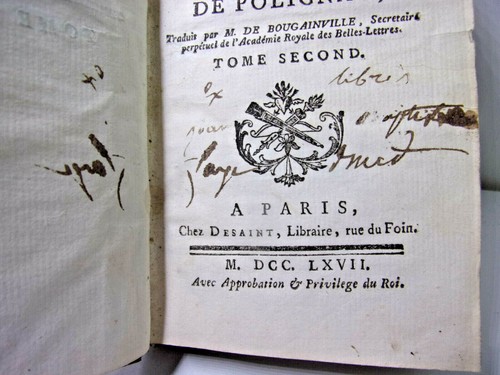 DE POLIGNAC,
Traduit par M. DE BOUGAINVILLE, Secretaire
perpétuel de l'Académie Royale des Belles-Lettres.
TOME SECOND.
ex libris
A PARIS,
Chez DESAINT, Libraire, rue du Foin.
M. DCC. LXVII.
Avec Approbation & Privilege du Roi.